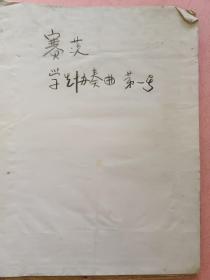 赛茨
学生协奏曲 第一号